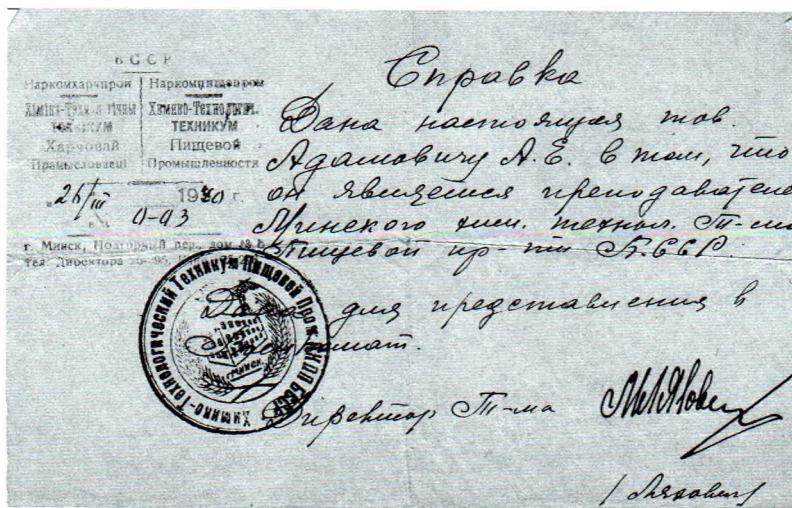 БССР
Наркомхарчпром
Хіміка-Тэхналагічны
ТЭХНІКУМ
Харчовай
Прамысловасці
Наркомпищепром
Химико-Технологич.
ТЕХНИКУМ
Пищевой
Промышленности
"26/III 1940 г.
0-93
г. Минск, Подгорный пер., дом №
Тел. Директора
Справка
Дана настоящая тов.
Адамовичу А.Е. в том, что
он является преподавателе
Минского хим. технол. Т-ма
Пищевой пр-ти БССР.
Дана для представления в
Директор Т-ма
Химико-Технологический Техникум Пищевой Пром. БССР
МИНСК